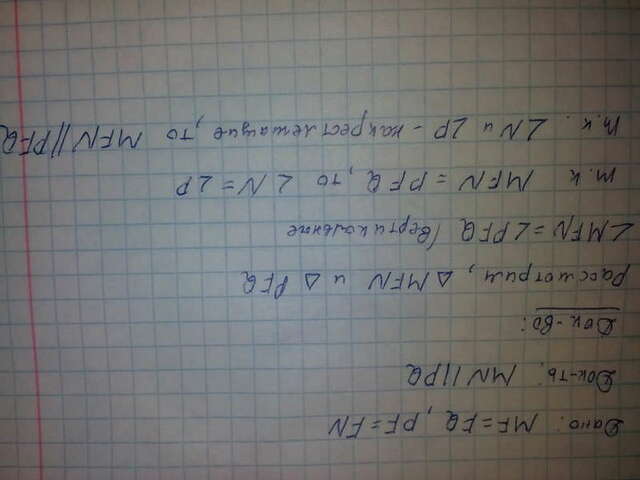 Дано: MF=FQ, PF=FN
Док-ть: MN||PQ
Док-во:
Рассмотрим, △ MFN и △ PFQ
∠MFN = ∠PFQ (вертикальные
т.к MFN = PFQ, то ∠N = ∠P
т.к. ∠N и ∠P - накрест лежащие, то MFN || PFQ